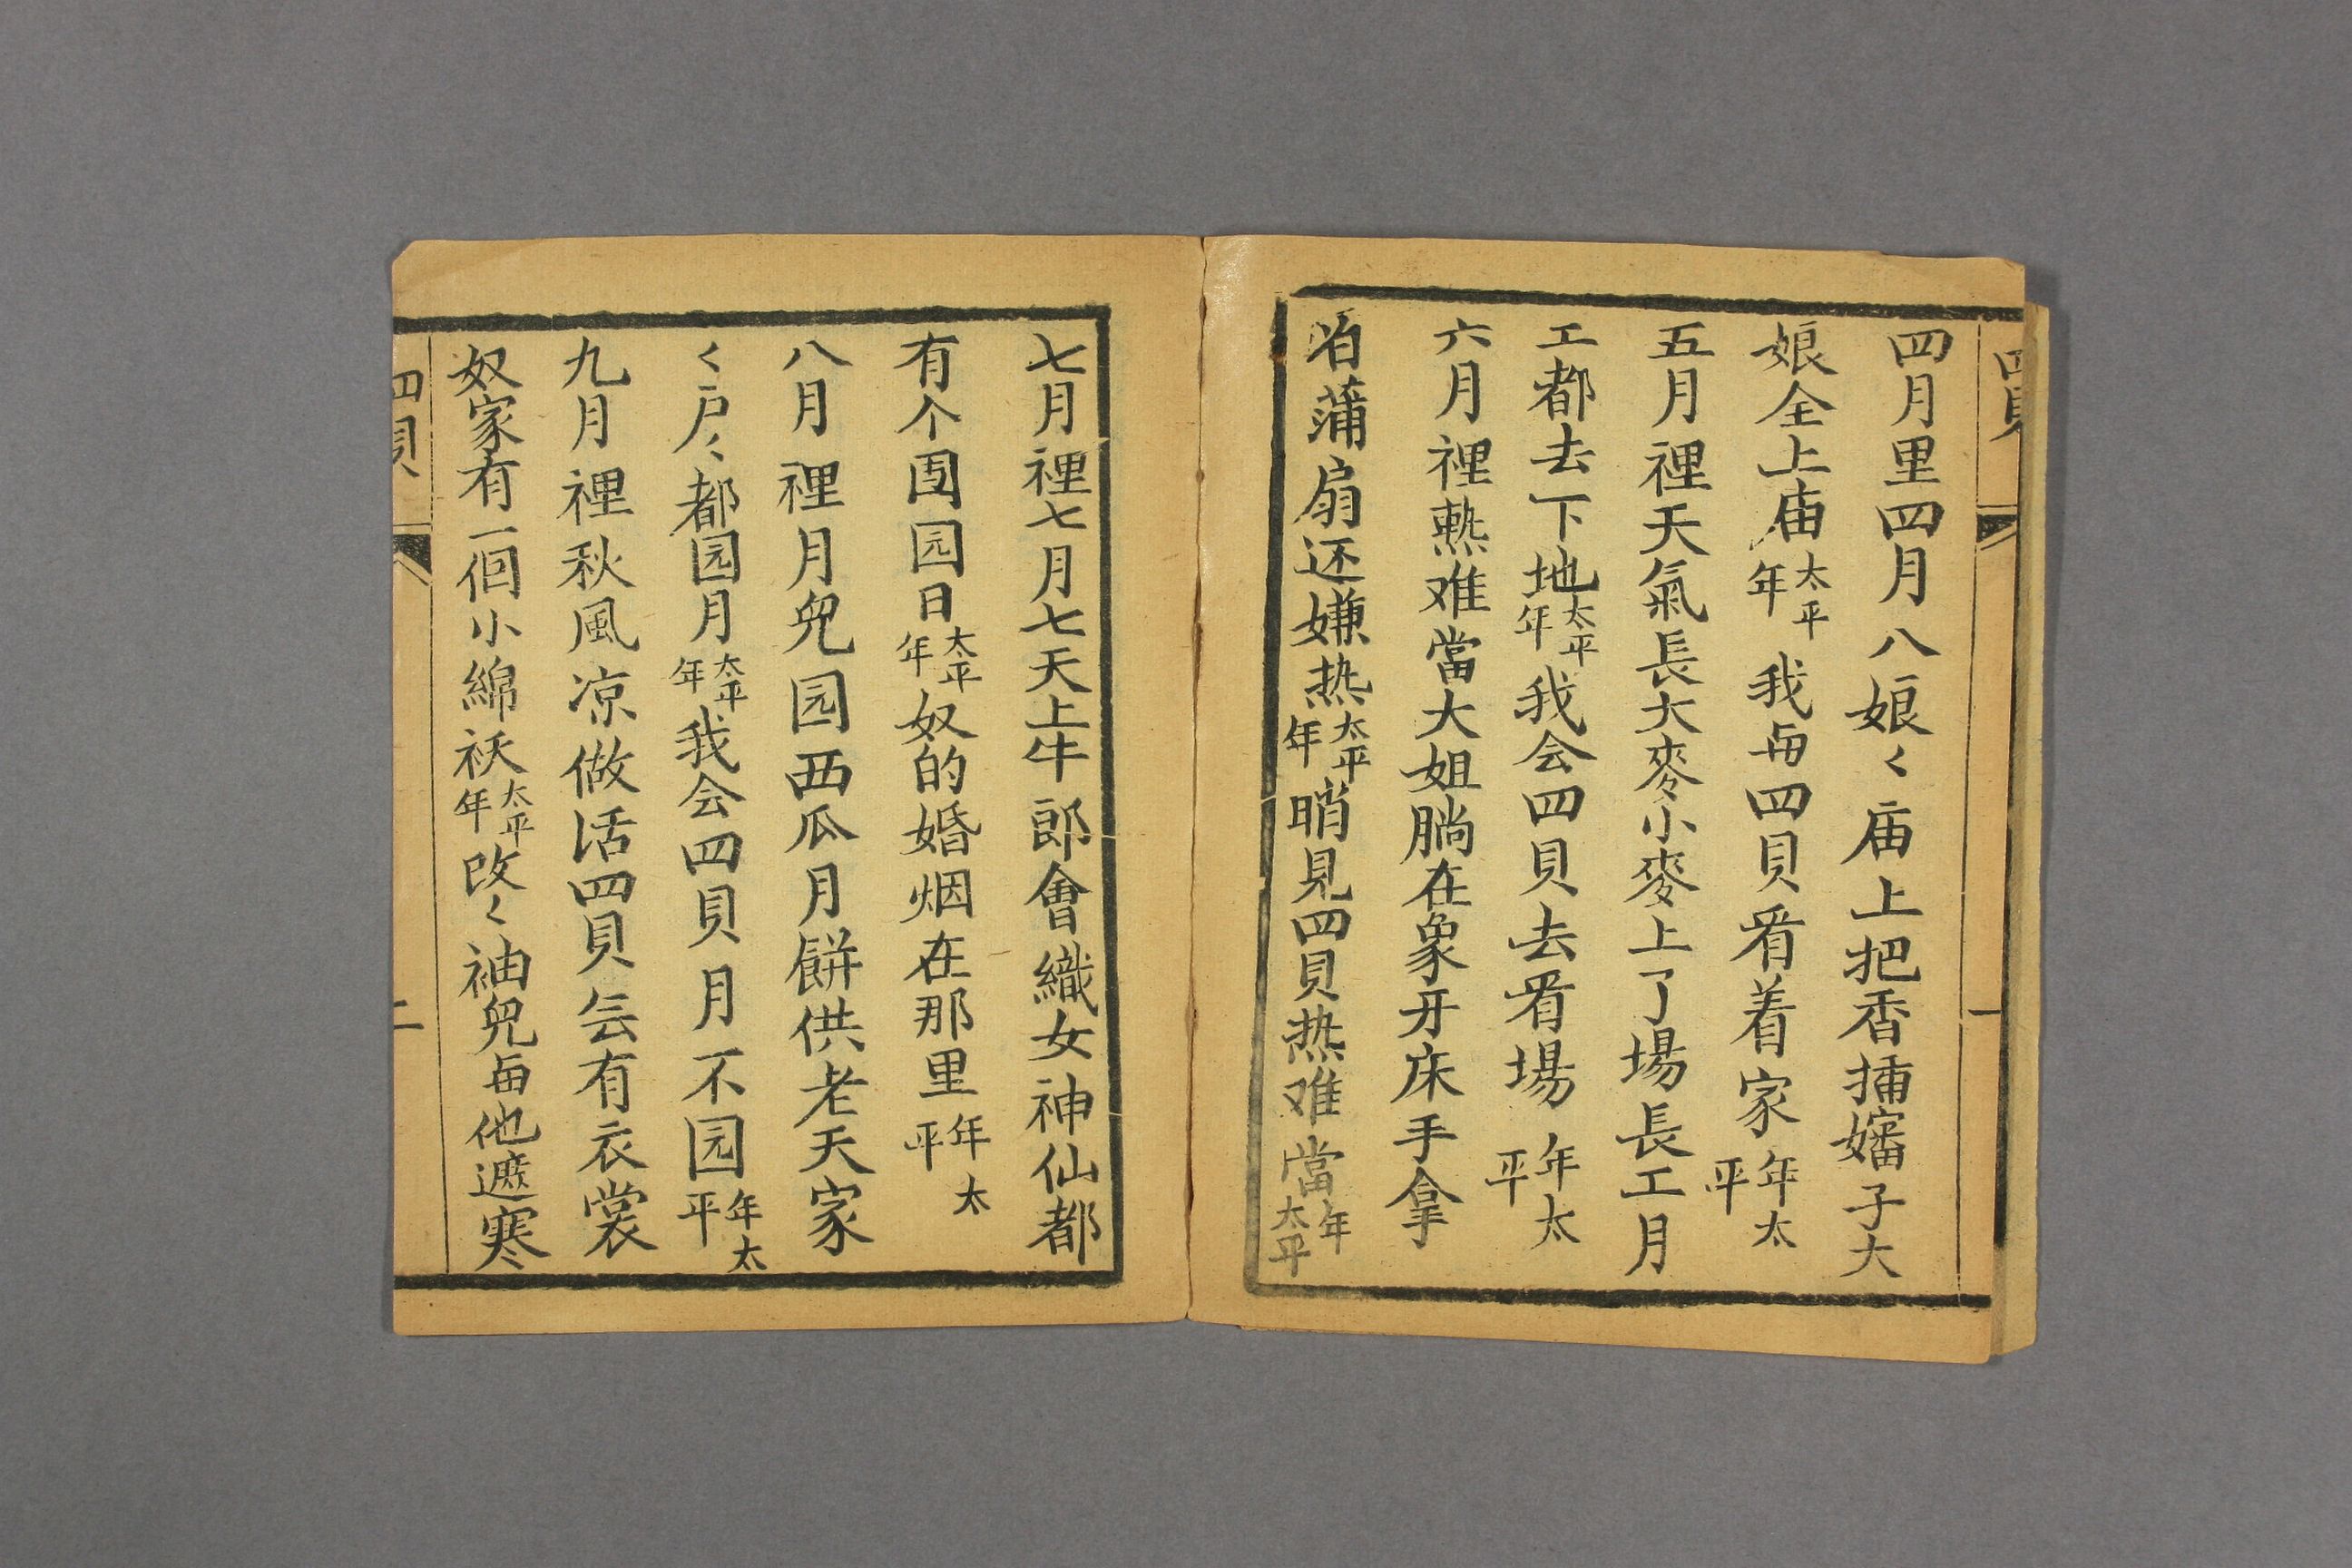 四月里四月八娘〻庙上把香捕嬸子大
娘仝上庙太平年我每四貝看着家年太平
五月裡天氣長大麥小麥上了場長工月
工都去下地太平年我会四貝去看場年太平
六月裡熱难當大姐腨在象牙床手拿
着蒲扇还嫌热太平年哨見四貝热难當年太平
七月裡七月七天上牛郎會織女神仙都
有个囬园日太平年奴的婚烟在那里年太平
八月裡月兒园西瓜月餅供老天家
〻户〻都园月太平年我会四貝月不园年太平
九月裡秋風凉做活四貝会有衣裳
奴家有一個小綿袄太平年改〻袖兒每他遮寒
四貝
二
四貝
一